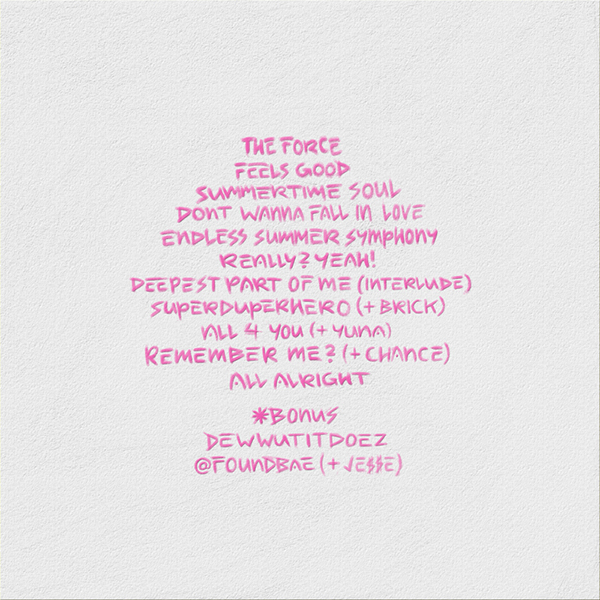 THE FORCE
FEELS GOOD
SUMMERTIME SOUL
DONT WANNA FALL IN LOVE
ENDLESS SUMMER SYMPHONY
REALLY? YEAH!
DEEPEST PART OF ME (INTERLUDE)
SUPERDUPERHERO (+ BRICK)
ALL 4 YOU (+ YUNA)
REMEMBER ME? (+ CHANCE)
ALL ALRIGHT
*BONUS
DEWWUTITDOEZ
@FOUNDBAE (+ JE$$E)